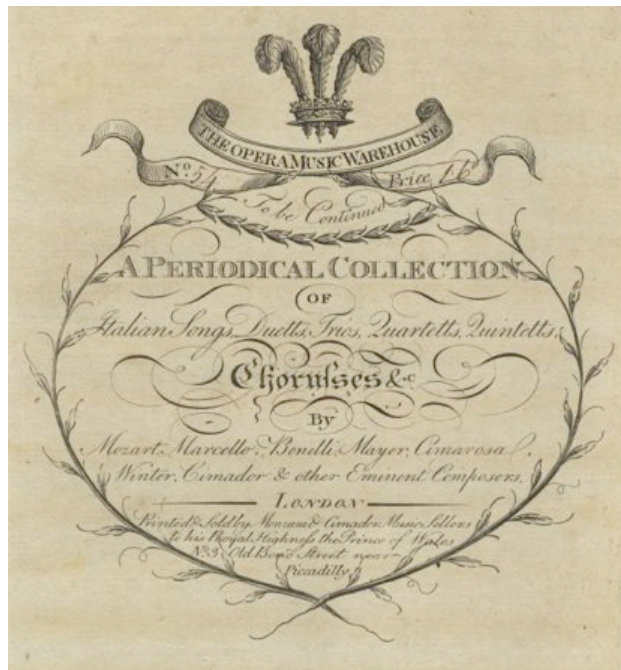 THE OPERA MUSIC WAREHOUSE
No. 54 Price 1.6
To be Continued
A PERIODICAL COLLECTION
OF
Italian Songs, Duetts, Trios, Quartetts, Quintetts,
Chorufses &c
By
Mozart, Marcello, Benelli, Mayer, Cimarosa,
Winter, Cimador & other Eminent Composers.
LONDON
Printed & Sold by Monzani & Cimador, Music Sellers
to his Royal Highnefs the Prince of Wales
No. 3 Old Bond Street near
Piccadilly